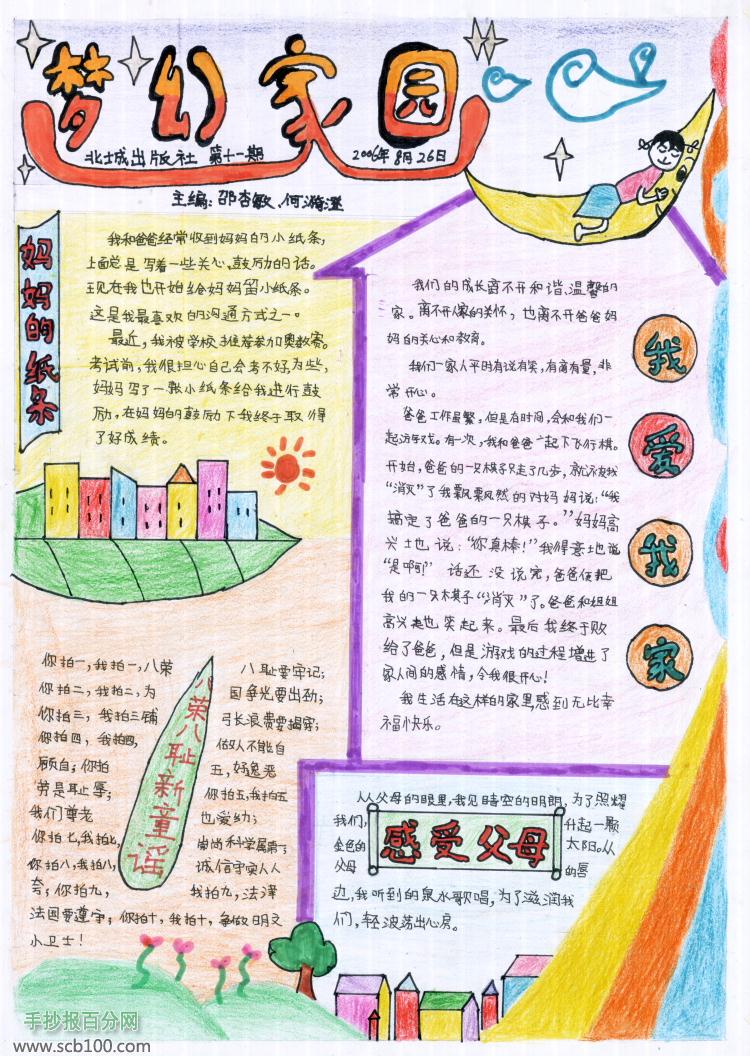 梦幻家园
北城出版社 第十一期 2006年8月26日
主编:邵杏敏、何
妈妈的纸条
我和爸爸经常收到妈妈的小纸条,
上面总是写着一些关心、鼓励的话。
现在我也开始给妈妈留小纸条。
这是我最喜欢的沟通方式之一。
最近,我被学校推荐参加奥数赛。
考试前,我很担心自己会考不好,为此,
妈妈写了一张小纸条给我进行鼓
励,在妈妈的鼓励下我终于取得
了好成绩。
我爱我家
我们的成长离不开和谐、温馨的
家。离不开家的关怀,也离不开爸爸妈
妈的关心和教育。
我们一家人平时有说有笑,有商有量,非
常开心。
爸爸工作虽繁,但是有时间,会和我们一
起游戏。有一次,我和爸爸一起下飞行棋。
开始,爸爸的一只棋子只走了几步,就
“消灭”了我飘飘然的对妈妈说:“我
搞定了爸爸的一只棋子。”妈妈高
兴土也说:“你真棒!”我得意地说
“是啊!”话还没说完,爸爸便把
我的一只棋子“消灭”了。爸爸和姐姐
高兴地笑起来。最后我终于败
给了爸爸,但是游戏的过程增进了
家人间的感情,令我很开心!
我生活在这样的家里感到无比幸
福快乐。
八荣八耻新童谣
你拍一,我拍一,八荣 八耻要牢记;
你拍二,我拍二,为 国争光要出劲;
你拍三,我拍三铺 张浪费要揭穿;
你拍四,我拍四, 做人不能自
顾自;你拍 五,好逸恶
劳是耻辱; 你拍五,我拍五
我们尊老 也爱幼;
你拍七,我拍七, 崇尚科学属
你拍八,我拍八, 诚信守实人人
夸;你拍九, 我拍九,法泽
法国要遵守;你拍十,我拍十,争做明文
小卫士!
感受父母
从父母的眼里,我见晴空的明朗,为了照耀
我们, 升起一颗
金色的 太阳。从
父母 的唇
边,我听到的泉水歌唱,为了滋润我
们,轻波荡出心房。
手抄报百分网
www.scb100.com